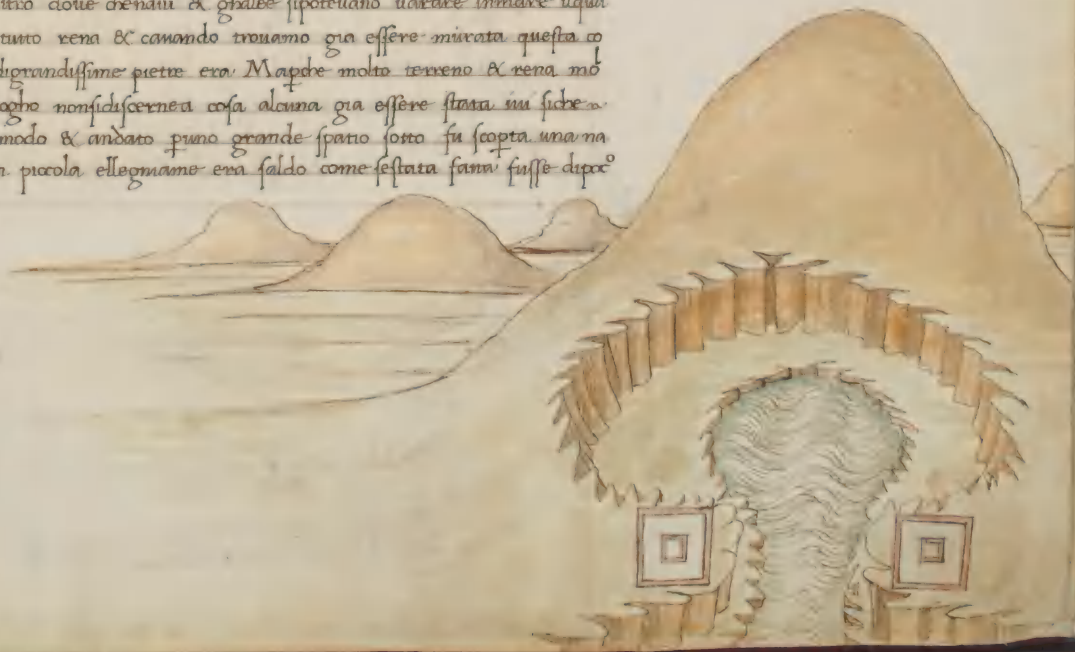 doue che naui & ghalee sipoteuano uarare inmare aqua
tutto rena & cauando trouamo gia essere murata questa co
digrandissime pietre era. Mapche molto terreno & rena mol
ogho nonsidiscernea cosa alcuna gia essere stata iui siche a
modo & andato p uno grande spatio sotto fu scopta una na
piccola ellegniame era saldo come sestata fana fusse dipoco